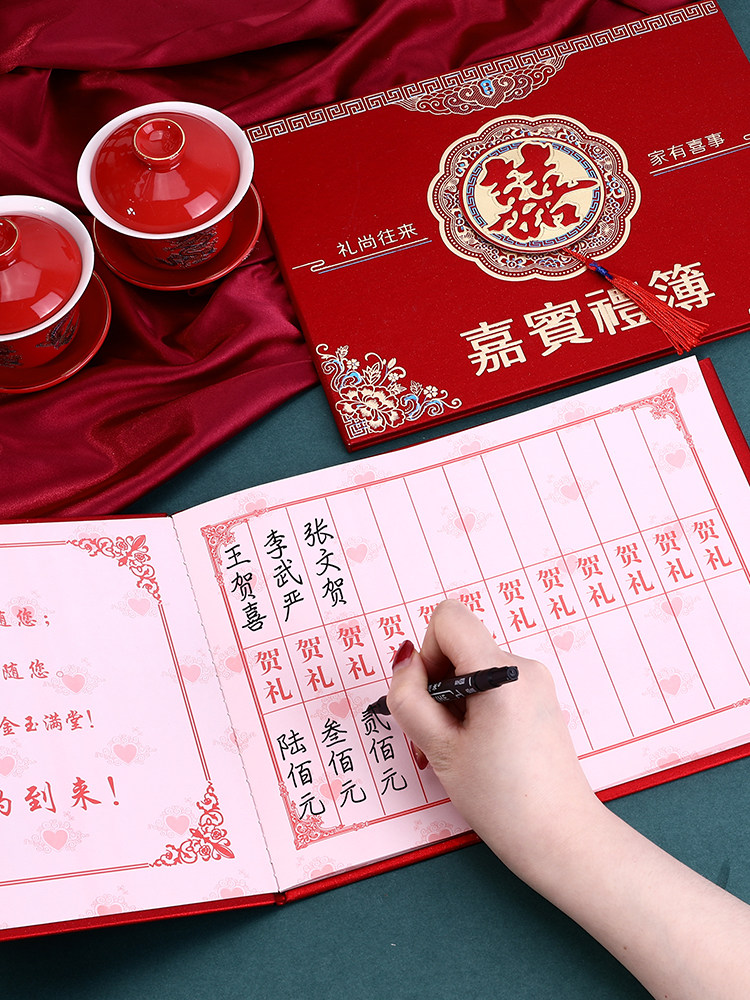 家有喜事
囍
礼尚往来
嘉賓禮簿
随您；
随您。
金玉满堂！
到来！
王贺喜
贺礼
陆佰元
李武严
贺礼
叁佰元
张文贺
贺礼
贰佰元
贺礼
贺
贺礼
贺礼
贺礼
贺礼
贺礼
贺礼
贺礼